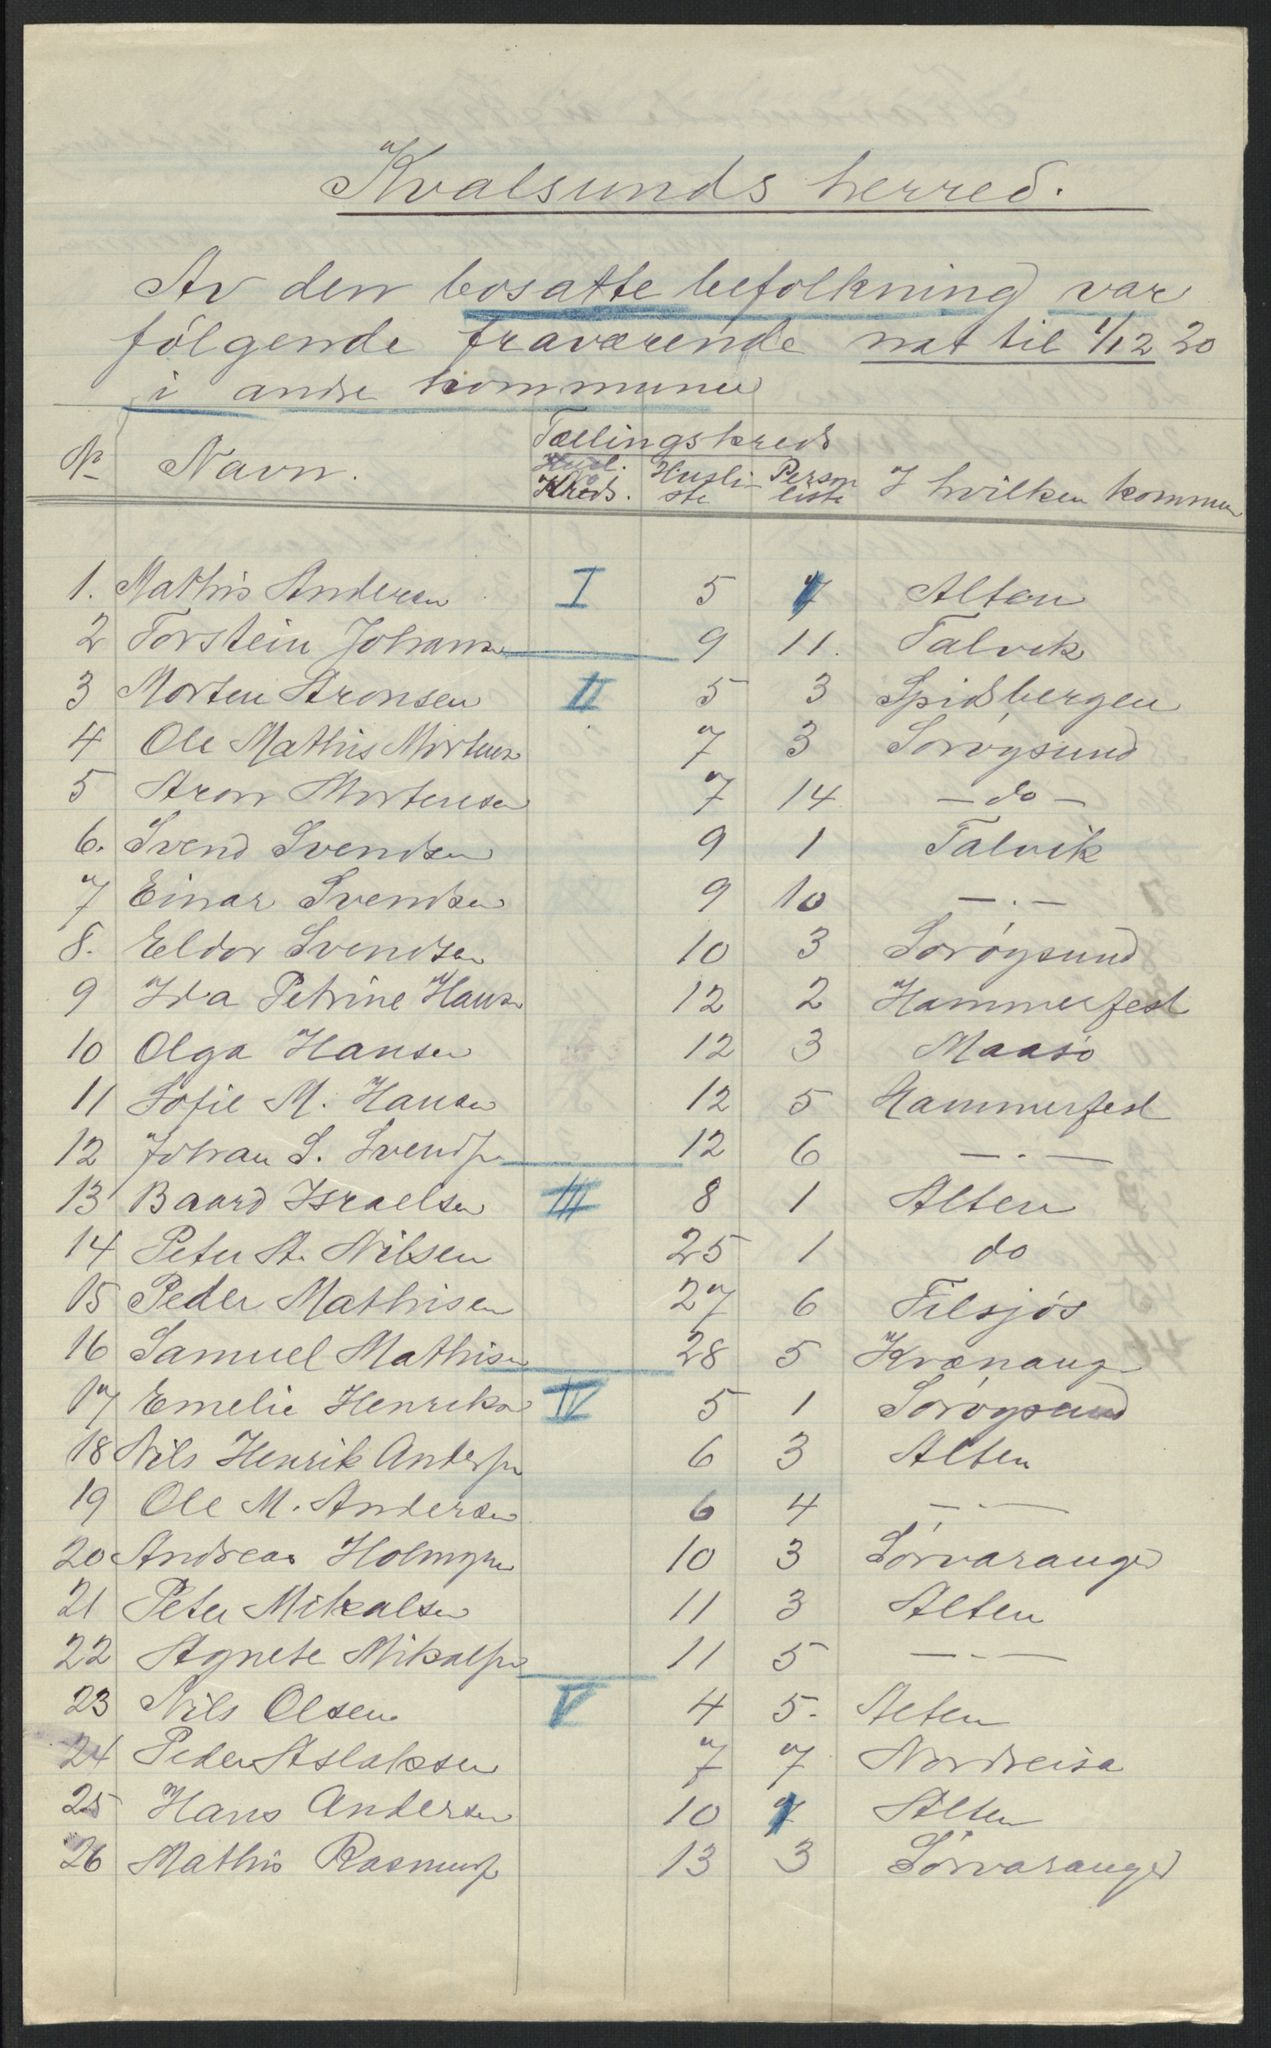 Kvalsunds herred.
Av den bosatte befolkning var
følgende fraværende nat til 1/12 20
i andre kommuner
Tællingskreds
No Navn. Kreds. Husliste Personliste I hvilken kommun
1. Mathis Andersen I 5 Alten
2 Torstein Johansen 9 11. Talvik
3 Morten Aronsen II 5 3 Spidsbergen
4 Ole Mathis Mortensen 7 3 Sørøysund
5 Aron Mortensen 7 14 — do —
6. Svend Svendsen 9 1 Talvik
7 Einar Svendsen 9 10 — . —
8. Eldor Svendsen 10 3 Sørøysund
9 Ida Petrine Hansen 12 2 Hammerfest
10 Olga Hansen 12 3 Maasø
11 Sofie M. Hansen 12 5 Hammerfest
12 Johan S. Svendsen 12 6 — . —
13 Baard Israelsen III 8 1 Alten
14 Peter A. Nilsen 25 1 do
15 Peder Mathisen 27 6
16 Samuel Mathisen 28 5 Kvænang
17 Emelie Henriksen IV 5 1 Sørøysund
18 Nils Henrik Andersen 6 3 Alten
19 Ole M. Andersen 6 4 — . —
20 Andreas Holmgren 10 3 Sørvaranger
21 Peter Mikalsen 11 3 Alten
22 Agnete Mikalsen 11 5 — . —
23 Nils Olsen V 4 5. Alten
24 Peder Aslaksen 7 7 Nordreisa
25 Hans Andersen 10 Alten
26 Mathis Rasmuss 13 3 Sørvaranger